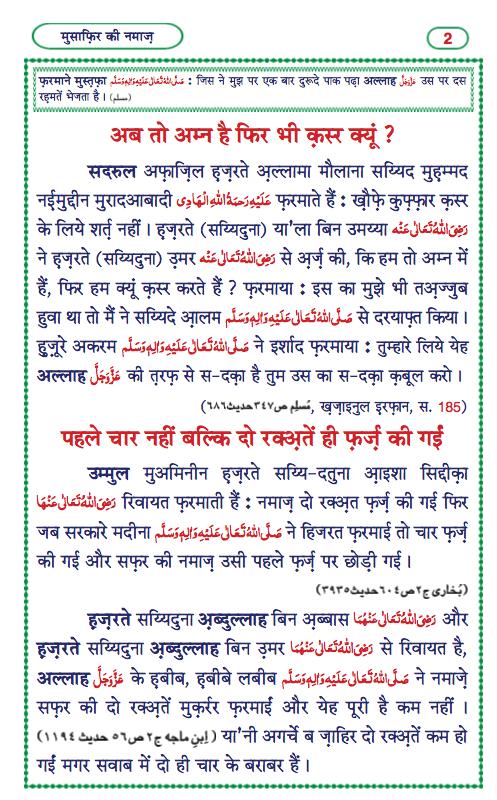 मुसाफ़िर की नमाज़
2
फ़रमाने मुस्त़फ़ा صَلَّى اللهُ تَعَالٰى عَلَيْهِ وَاٰلِهٖ وَسَلَّم : जिस ने मुझ पर एक बार दुरूदे पाक पढ़ा अल्लाह عَزَّوَجَلَّ उस पर दस
रह़मतें भेजता है। (مسلم)
अब तो अम्न है फिर भी क़स्र क्यूं ?
सदरुल अफ़ाज़िल ह़ज़रते अ़ल्लामा मौलाना सय्यिद मुह़म्मद
नई़मुद्दीन मुरादआबादी عَلَيْهِ رَحْمَةُ اللهِ الْهَادِى फ़रमाते हैं : ख़ौफ़े कुफ़्फ़ार क़स्र
के लिये शर्त़ नहीं। ह़ज़रते (सय्यिदुना) या'ला बिन उमय्या رَضِىَ اللهُ تَعَالٰى عَنْه
ने ह़ज़रते (सय्यिदुना) उ़मर رَضِىَ اللهُ تَعَالٰى عَنْه से अ़र्ज़ की, कि हम तो अम्न में
हैं, फिर हम क्यूं क़स्र करते हैं ? फ़रमाया : इस का मुझे भी तअ़ज्जुब
हुवा था तो मैं ने सय्यिदे आ़लम صَلَّى اللهُ تَعَالٰى عَلَيْهِ وَاٰلِهٖ وَسَلَّم से दरयाफ़्त किया।
हु़ज़ूरे अकरम صَلَّى اللهُ تَعَالٰى عَلَيْهِ وَاٰلِهٖ وَسَلَّم ने इर्शाद फ़रमाया : तुम्हारे लिये येह
अल्लाह عَزَّوَجَلَّ की त़रफ़ से स-दक़ा है तुम उस का स-दक़ा क़बूल करो।
(مُسلِم ص٣٤٧ حديث٦٨٦, ख़ज़ाइनुल इरफ़ान, स. 185)
पहले चार नहीं बल्कि दो रक्अ़तें ही फ़र्ज़ की गईं
उम्मुल मुअमिनीन ह़ज़रते सय्यि-दतुना आ़इशा सि़द्दीक़ा
رَضِىَ اللهُ تَعَالٰى عَنْهَا रिवायत फ़रमाती हैं : नमाज़ दो रक्अ़त फ़र्ज़ की गई फिर
जब सरकारे मदीना صَلَّى اللهُ تَعَالٰى عَلَيْهِ وَاٰلِهٖ وَسَلَّم ने हिजरत फ़रमाई तो चार फ़र्ज़
की गई और सफ़र की नमाज़ उसी पहले फ़र्ज़ पर छोड़ी गई।
(بُخارى ج٢ ص٦٠٤ حديث٣٩٣٥)
ह़ज़रते सय्यिदुना अ़ब्दुल्लाह बिन अ़ब्बास رَضِىَ اللهُ تَعَالٰى عَنْهُمَا और
ह़ज़रते सय्यिदुना अ़ब्दुल्लाह बिन उ़मर رَضِىَ اللهُ تَعَالٰى عَنْهُمَا से रिवायत है,
अल्लाह عَزَّوَجَلَّ के ह़बीब, ह़बीबे लबीब صَلَّى اللهُ تَعَالٰى عَلَيْهِ وَاٰلِهٖ وَسَلَّم ने नमाज़े
सफ़र की दो रक्अ़तें मुक़र्रर फ़रमाईं और येह पूरी है कम नहीं।
(اِبنِ ماجه ج٢ ص٥٦ حديث ١١٩٤) या'नी अगर्चे ब ज़ाहिर दो रक्अ़तें कम हो
गईं मगर सवाब में दो ही चार के बराबर हैं।